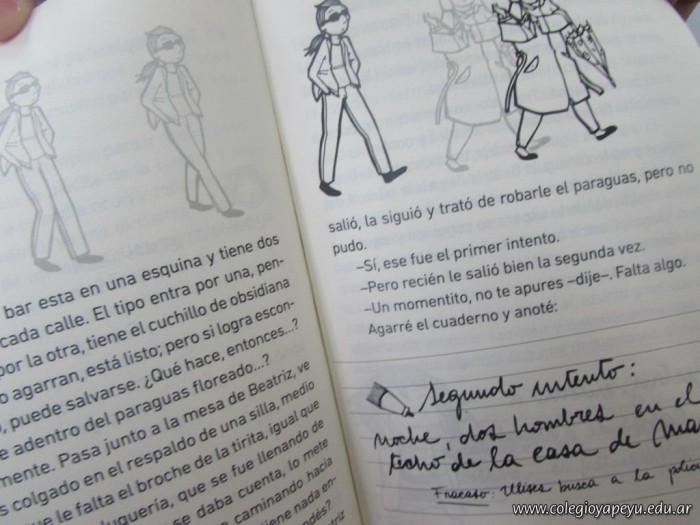 bar esta en una esquina y tiene dos
cada calle. El tipo entra por una, pen-
por la otra, tiene el cuchillo de obsidiana
o agarran, está listo; pero si logra escon-
, puede salvarse. ¿Qué hace, entonces...?
e adentro del paraguas floreado...?
mente. Pasa junto a la mesa de Beatriz, ve
s colgado en el respaldo de una silla, medio
ue le falta el broche de la tirita, igual que
luquería, que se fue llenando de
se daba cuenta, lo mete
caminando hacia
tiene nada en-
ndés?
triz
salió, la siguió y trató de robarle el paraguas, pero no
pudo.
–Sí, ese fue el primer intento.
–Pero recién le salió bien la segunda vez.
–Un momentito, no te apures –dije–. Falta algo.
Agarré el cuaderno y anoté:
Segundo intento:
noche, dos hombres en el
techo de la casa de Ma
Fracaso: Ulises busca a la policí
www.colegioyapeyu.edu.ar